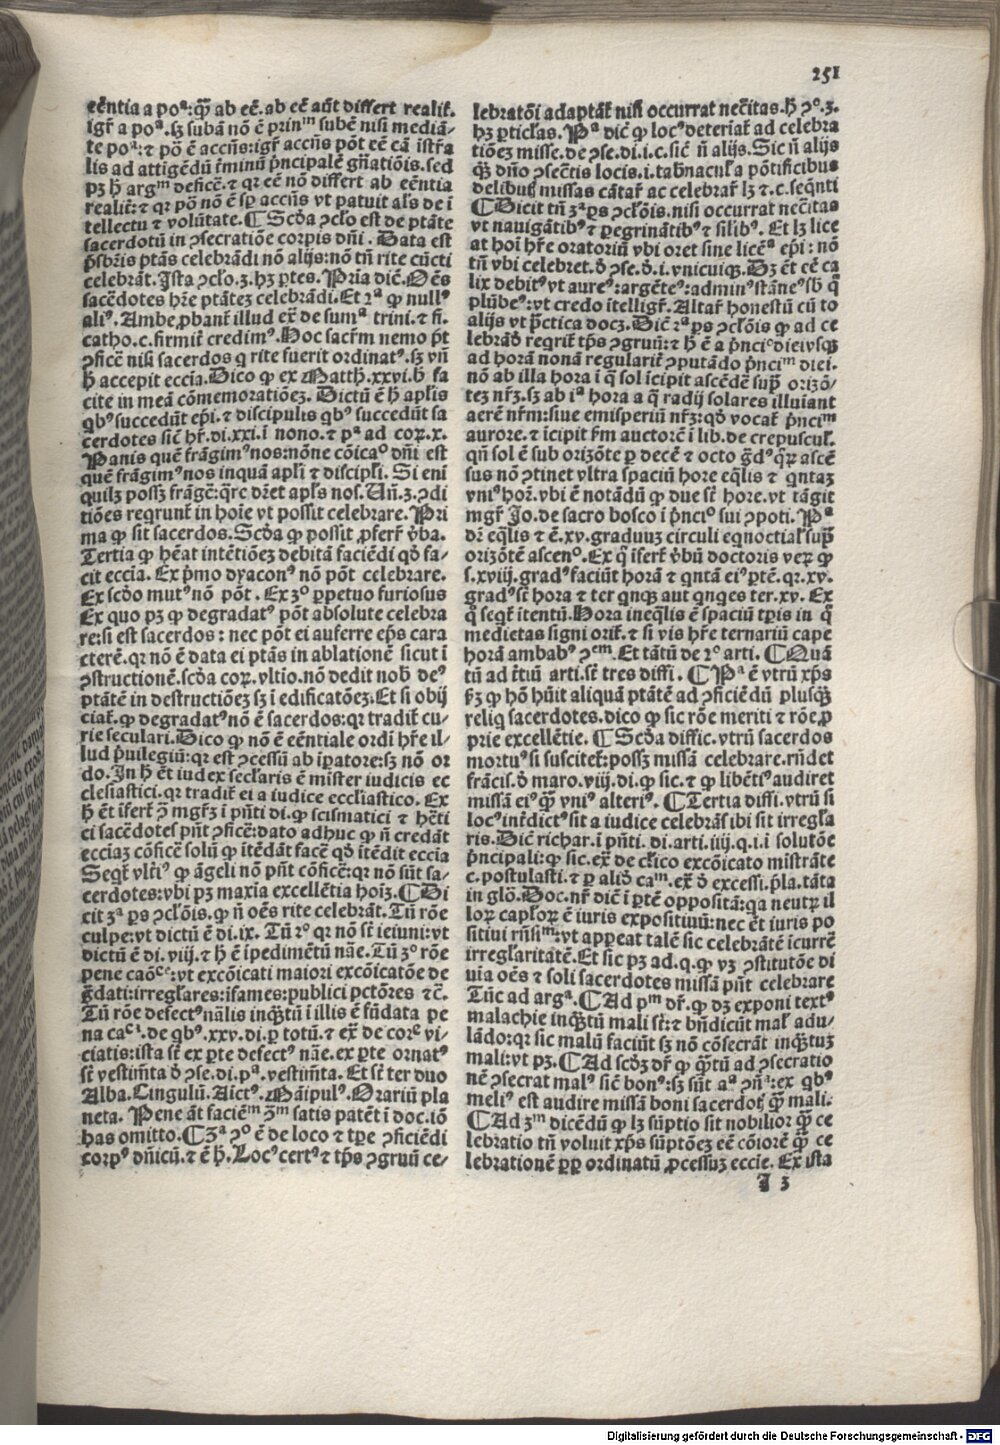 251
eẽntia a poᵃ:q̃ꝫ ab eẽ.ab eẽ aũt differt realit᷑.
igr̃ a poᵃ.sꝫ subãa nõ ẽ prinᵐ subẽ nisi mediã/
te poᵃ:⁊ põ ẽ accñs:igr̃ accñs põt eẽ cã istr̃a
lis ad attigẽdũ t̃minũ p̃ncipalẽ gñatiõis.sed
pꝫ h̃ argᵐ deficẽ.⁊ qꝛ eẽ nõ differt ab eẽntia
realit᷑:⁊ qꝛ põ nõ ẽ sp̃ accñs vt patuit al̃s de i
tellectu ⁊ volũtate.¶ Scd̃a ꝯclo est de ptãte
sacerdotũ in ꝯsecratiõe corpis dñi. Data est
p̃sbr̃is ptãs celebrãdi nõ alijs:nõ tñ rite cũcti
celebrãt.Ista ꝯclo.3.hꝫ ptes. Pr̃ia dic̃.Oẽs
sacẽdotes hr̃e ptãteꝫ celebrãdi.Et 2ᵃ ꝙ null⁹
ali⁹.Ambe ꝓbant᷑ illud ex̃ de sumᵃ trini.⁊ fi.
catho.c.firmit᷑ credim⁹.Hoc sacr̃m nemo p̃t
ꝯficẽ nisi sacerdos q rite fuerit ordinat⁹.sꝫ vñ
h̃ accepit eccia.Dico ꝙ ex Matth.xxvi.h̃ fa
cite in meã cõmemoratiõeꝫ. Dictũ ẽ h̃ apl̃is
qb⁹ succedũt epi.⁊ discipulis qb⁹ succedũt sa
cerdotes sic̃ hr̃.di.xxi.i nono.⁊ pᵃ ad coꝝ.x.
Panis quẽ frãgim⁹ nos:nõne cõicaᵒ dñi est
quẽ frãgim⁹ nos inquã apl̃i ⁊ discipl̃i. Si eni
quilꝫ possꝫ frãgẽ:qr̃c dr̃et apl̃s nos.Uñ.3.ꝯdi
tiões reqrunt᷑ in hoĩe vt possit celebrare.Pri
ma ꝙ sit sacerdos.Scd̃a ꝙ possit ꝓferr̃ v̾ba.
Tertia ꝙ hẽat intẽtiõeꝫ debitã faciẽdi qd̾ fa/
cit eccia. Ex p̃mo dyacon⁹ nõ põt celebrare.
Ex scd̃o mut⁹ nõ põt . Ex 3ᵒ ꝑpetuo furiosus
Ex quo pꝫ ꝙ degradat⁹ põt absolute celebra
re:si est sacerdos: nec põt ei auferre ep̃s cara
cterẽ.qꝛ nõ ẽ data ei ptãs in ablationẽ sicut i
ꝯstructionẽ.scd̃a coꝝ.vltio.nõ dedit nob̃ de⁹
ptãtẽ in destructiõeꝫ sꝫ i edificatõeꝫ.Et si obij
ciat᷑.ꝙ degradat⁹ nõ ẽ sacerdos:qꝛ tradit᷑ cu/
rie seculari.Dico ꝙ nõ ẽ eẽntiale ordi hr̃e il/
lud p̃uilegiũ:qꝛ est ꝯcessũ ab ĩpatore:sꝫ nõ or
do.In h̃ ẽt iudex sec̃laris ẽ mĩster iudicis ec
clesiastici.qꝛ tradit᷑ ei a iudice eccl̃iastico. Ex
h̃ ẽt ĩfert᷑ ꝯ̃ mgr̃ꝫ i pñti di.ꝙ scismatici ⁊ hẽti
ci sacẽdotes pñt ꝯficẽ:dato adhuc ꝙ ñ credãt
ecciaꝫ cõficẽ solũ ꝙ ĩtẽdãt facẽ qd̾ ĩtẽdit eccia
Seqt᷑ vlt̾i⁹ ꝙ ãgeli nõ pñt cõficẽ:qꝛ nõ sũt sa/
cerdotes:vbi pꝫ maxĩa excellẽtia hoĩꝫ.¶ Di
xit 3ᵃ ps ꝯclõis.ꝙ ñ oẽs rite celebrãt.Tũ rõe
culpe:vt dictũ ẽ di.ix. Tũ 2ᵒ qꝛ nõ sẽ ieiuni:vt
dictũ ẽ di.viij.⁊ h̃ ẽ ĩpedimẽtũ nãe.Tũ 3ᵒ rõe
pene caõᶜᵉ:vt excõicati maiori excõicatõe de
g̃dati:irregl̃ares:ĩfames:publici pctõres ⁊c̃.
Tũ rõe defect⁹ nãlis inq̃tũ i illis ẽ fũdata pe
na caᶜⁱ.de qb⁹.xxv.di.ꝑ totũ.⁊ ex̃ de corᵉ vi/
ciatis:ista sẽ ex ꝑte defect⁹ nãe.ex ꝑte ornat⁹
sẽ vestim̃ta d̾ ꝯse.di.pᵃ.vestim̃ta. Et sẽ ter duo
Alba.Cingulũ.Aĩct⁹.Mãipul⁹.Orariũ pla
neta. Pene ãt faciẽᵐ ꝯ̃ᵐ satis patẽt i doc.iõ
has omitto.¶ 3ᵃ ꝯᵒ ẽ de loco ⁊ tꝑe ꝯficiẽdi
corp⁹ dñicũ.⁊ ẽ h̃.Loc⁹ cert⁹ ⁊ tp̃s ꝯgruũ ce/
lebratõi adaptãt᷑ nisi occurrat nec̃itas.h̃ ꝯᵒ.3.
hꝫ ꝑticl̃as.Pᵃ dic̃ ꝙ loc⁹ deteriat᷑ ad celebra
tiõeꝫ misse.de ꝯse.di.i.c.sic̃ ñ alijs.Sic ñ alijs
q̃ꝫ dño ꝯsec̃tis locis.i.tab̾nacul̃a põtificibus
delibutꝭ missas cãtat᷑ ac celebrat᷑ lꝫ ⁊ c.seq̃nti
¶ Dicit tñ 3ᵃ ps ꝯclõis.nisi occurrat nec̃itas
vt nauigãtib⁹ ⁊ peregrinãtib⁹ ⁊ silib⁹. Et lꝫ lice
at hoĩ hr̃e oratoriũ vbi oret sine licẽᵃ epi: nõ
tñ vbi celebret.d̾ ꝯse.d̾.i.vnicuiqꝫ.Dꝫ ẽt eẽ ca
lix debit⁹ vt aure⁹:argẽte⁹:admin⁹ stãne⁹ sb̾ q̃
plũbe⁹:vt credo ĩtelligr̃.Altar̃ honestũ cũ to
alijs vt p̃ctica doc3.Dic̃ 2ᵃ ps ꝯclõis ꝙ ad ce
lebrãd̾ reqrit᷑ tp̃s ꝯgruũ:⁊ h̃ ẽ a p̃nciᵒ diei vsqꝫ
ad horã nonã regularit᷑ ꝯputãdo p̃nciᵐ diei.
nõ ab illa hora i q̃ sol ĩcipit ascẽdẽ sup̃ orizõ/
teꝫ nr̃ꝫ.sꝫ ab iᵃ hora a q̃ radij solares illuĩant
aerẽ nr̃m:siue emisperiũ nr̃ꝫ:qd̾ vocat᷑ p̃nciᵐ
aurore.⁊ ĩcipit f̾m auctorẽ i lib.de crepuscul̃.
qñ sol ẽ sub orizõte ꝑ decẽ ⁊ octo g̃d⁹ q̃ꝝ ascẽ
sus nõ ꝯtinet vltra spaciũ hore eq̃lis ⁊ qntaꝫ
vni⁹ hoꝛ̃.vbi ẽ notãdũ ꝙ due sẽ hore.vt tãgit
mgr̃ Jo.de sacro bosco i p̃nciᵒ sui ꝯpoti. Pᵃ
dr̃ eq̃lis ⁊ ẽ.xv.graduuꝫ circuli eqnoctial̃ sup̃
orizõtẽ ascenᵒ. Ex q̃ ĩfert᷑ v̾bũ doctoris veꝝ ꝙ
s.xviij.grad⁹ faciũt horã ⁊ qntã ei⁹ ꝑtẽ.qꝛ.xv.
grad⁹ sẽ hora ⁊ ter qnqꝫ aut qnqes ter.xv. Ex
q̃ seqt᷑ itentũ.Hora ineq̃lis ẽ spaciũ tꝑis in q̃
medietas signi orit᷑.⁊ si vis hr̃e ternariũ cape
horã ambab⁹ ꝯᵉᵐ.Et tãtũ de 2ᵒ arti. ¶ Quã
tũ ad t̾tiũ arti.sẽ tres diffi. ¶ Pᵃ ẽ vtrũ xp̃s
s̾ꝫ ꝙ hõ hũit aliquã ptãtẽ ad ꝯficiẽdũ plusq̃ꝫ
reliq sacerdotes.dico ꝙ sic rõe meriti ⁊ rõe ꝓ
prie excellẽtie. ¶ Scd̃a diffic.vtrũ sacerdos
mortu⁹ si suscitet᷑:possꝫ missã celebrare.rñdet
frãcis.d̾ maro.viij.di.ꝙ sic.⁊ ꝙ libẽti⁹ audiret
missã ei⁹ q̃ꝫ vni⁹ alteri⁹. ¶ Tertia diffi.vtrũ si
loc⁹ int̾dict⁹ sit a iudice celebrãs ibi sit irregl̃a
ris.Dic̃ richar.i pñti. di.arti.iiij.q.i.i solutõe
p̃ncipali:ꝙ sic.ex̃ de cl̃ico excõicato mĩstrãte
c.postulasti.⁊ ꝑ aliõ caᵐ.ex̃ d̾ excessi.p̃la.tãta
in glõ.Doc.nr̃ dic̃ i ꝑtẽ oppositã:qa neutꝝ il
loꝝ capl̃oꝝ ẽ iuris expositiuũ:nec ẽt iuris po
sitiui rñsiᵐ:vt appeat talẽ sic celebrãtẽ icurrẽ
irregl̃aritatẽ.Et sic pꝫ ad.q.ꝙ vꝫ ꝯstitutõe di
uia oẽs ⁊ soli sacerdotes missã pñt celebrare
Tũc ad argᵃ.¶ Ad pᵐ dr̃.ꝙ dꝫ exponi text⁹
malachie inq̃tũ mali sẽ:⁊ bñdicũt mal̃ adu/
lãdo:qꝛ sic malũ faciũt sꝫ nõ cõsecrãt inq̃tuꝫ
mali:vt pꝫ.¶ Ad scd̾ꝫ dr̃ ꝙ q̃tũ ad ꝯsecratio
nẽ ꝯsecrat mal⁹ sic̃ bon⁹:sꝫ sũt aᵃ ꝯñᵃ:ex qb⁹
meli⁹ est audire missã boni sacerdotꝭ q̃ꝫ mali.
¶ Ad 3ᵐ dicẽdũ ꝙ lꝫ sũptio sit nobilior q̃ꝫ ce
lebratio tñ voluit xp̃s sũptõeꝫ eẽ cõiorẽ q̃ꝫ ce
lebrationẽ ꝓꝑ ordinatũ ꝓcessuꝫ eccie. Ex ista
I 3
Digitalisierung gefördert durch die Deutsche Forschungsgemeinschaft - DFG